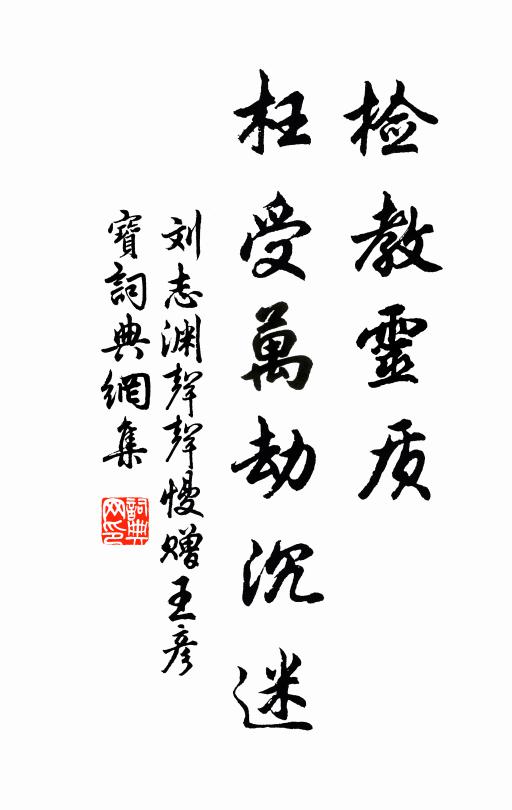 检教靈质
枉受萬劫沉迷
刘志渊聲聲慢赠王彦
寶詞典網集
詞典
网印